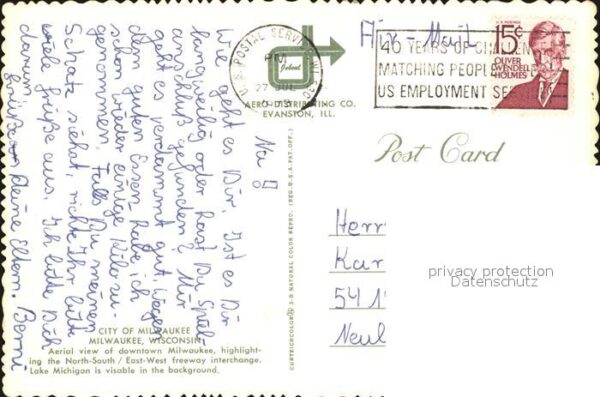 Air-Mail
U.S. POSTAL SERVICE
PM
27
40 YEARS OF
MATCHING PEOPLE
US EMPLOYMENT SE
U.S. POSTAGE
15¢
OLIVER
WENDELL
HOLMES
AERO DISTRIBUTING CO.
EVANSTON, ILL.
Post Card
Na
Wie geht es Dir. Ist es Dir
langweilig oder hast Du Spiel-
anschluß gefunden? Mir
geht es verdammt gut. Wegen
dem guten Essen habe ich
schon wieder einige Kilo zu-
genommen. Falls Du meinen
Schatz siehst, richte Ihr bitte
viele Grüße aus. Ich bitte Dich
darum. Deine Eltern. Benni
Herr
Kar
541
Neu
privacy protection
Datenschutz
CURTEICHCOLOR® 3-D NATURAL COLOR REPRO. (REG'D U.S.A. PAT. OFF.)
CITY OF MILWAUKEE
MILWAUKEE, WISCONSIN
Aerial view of downtown Milwaukee, highlight-
ing the North-South / East-West freeway interchange.
Lake Michigan is visable in the background.